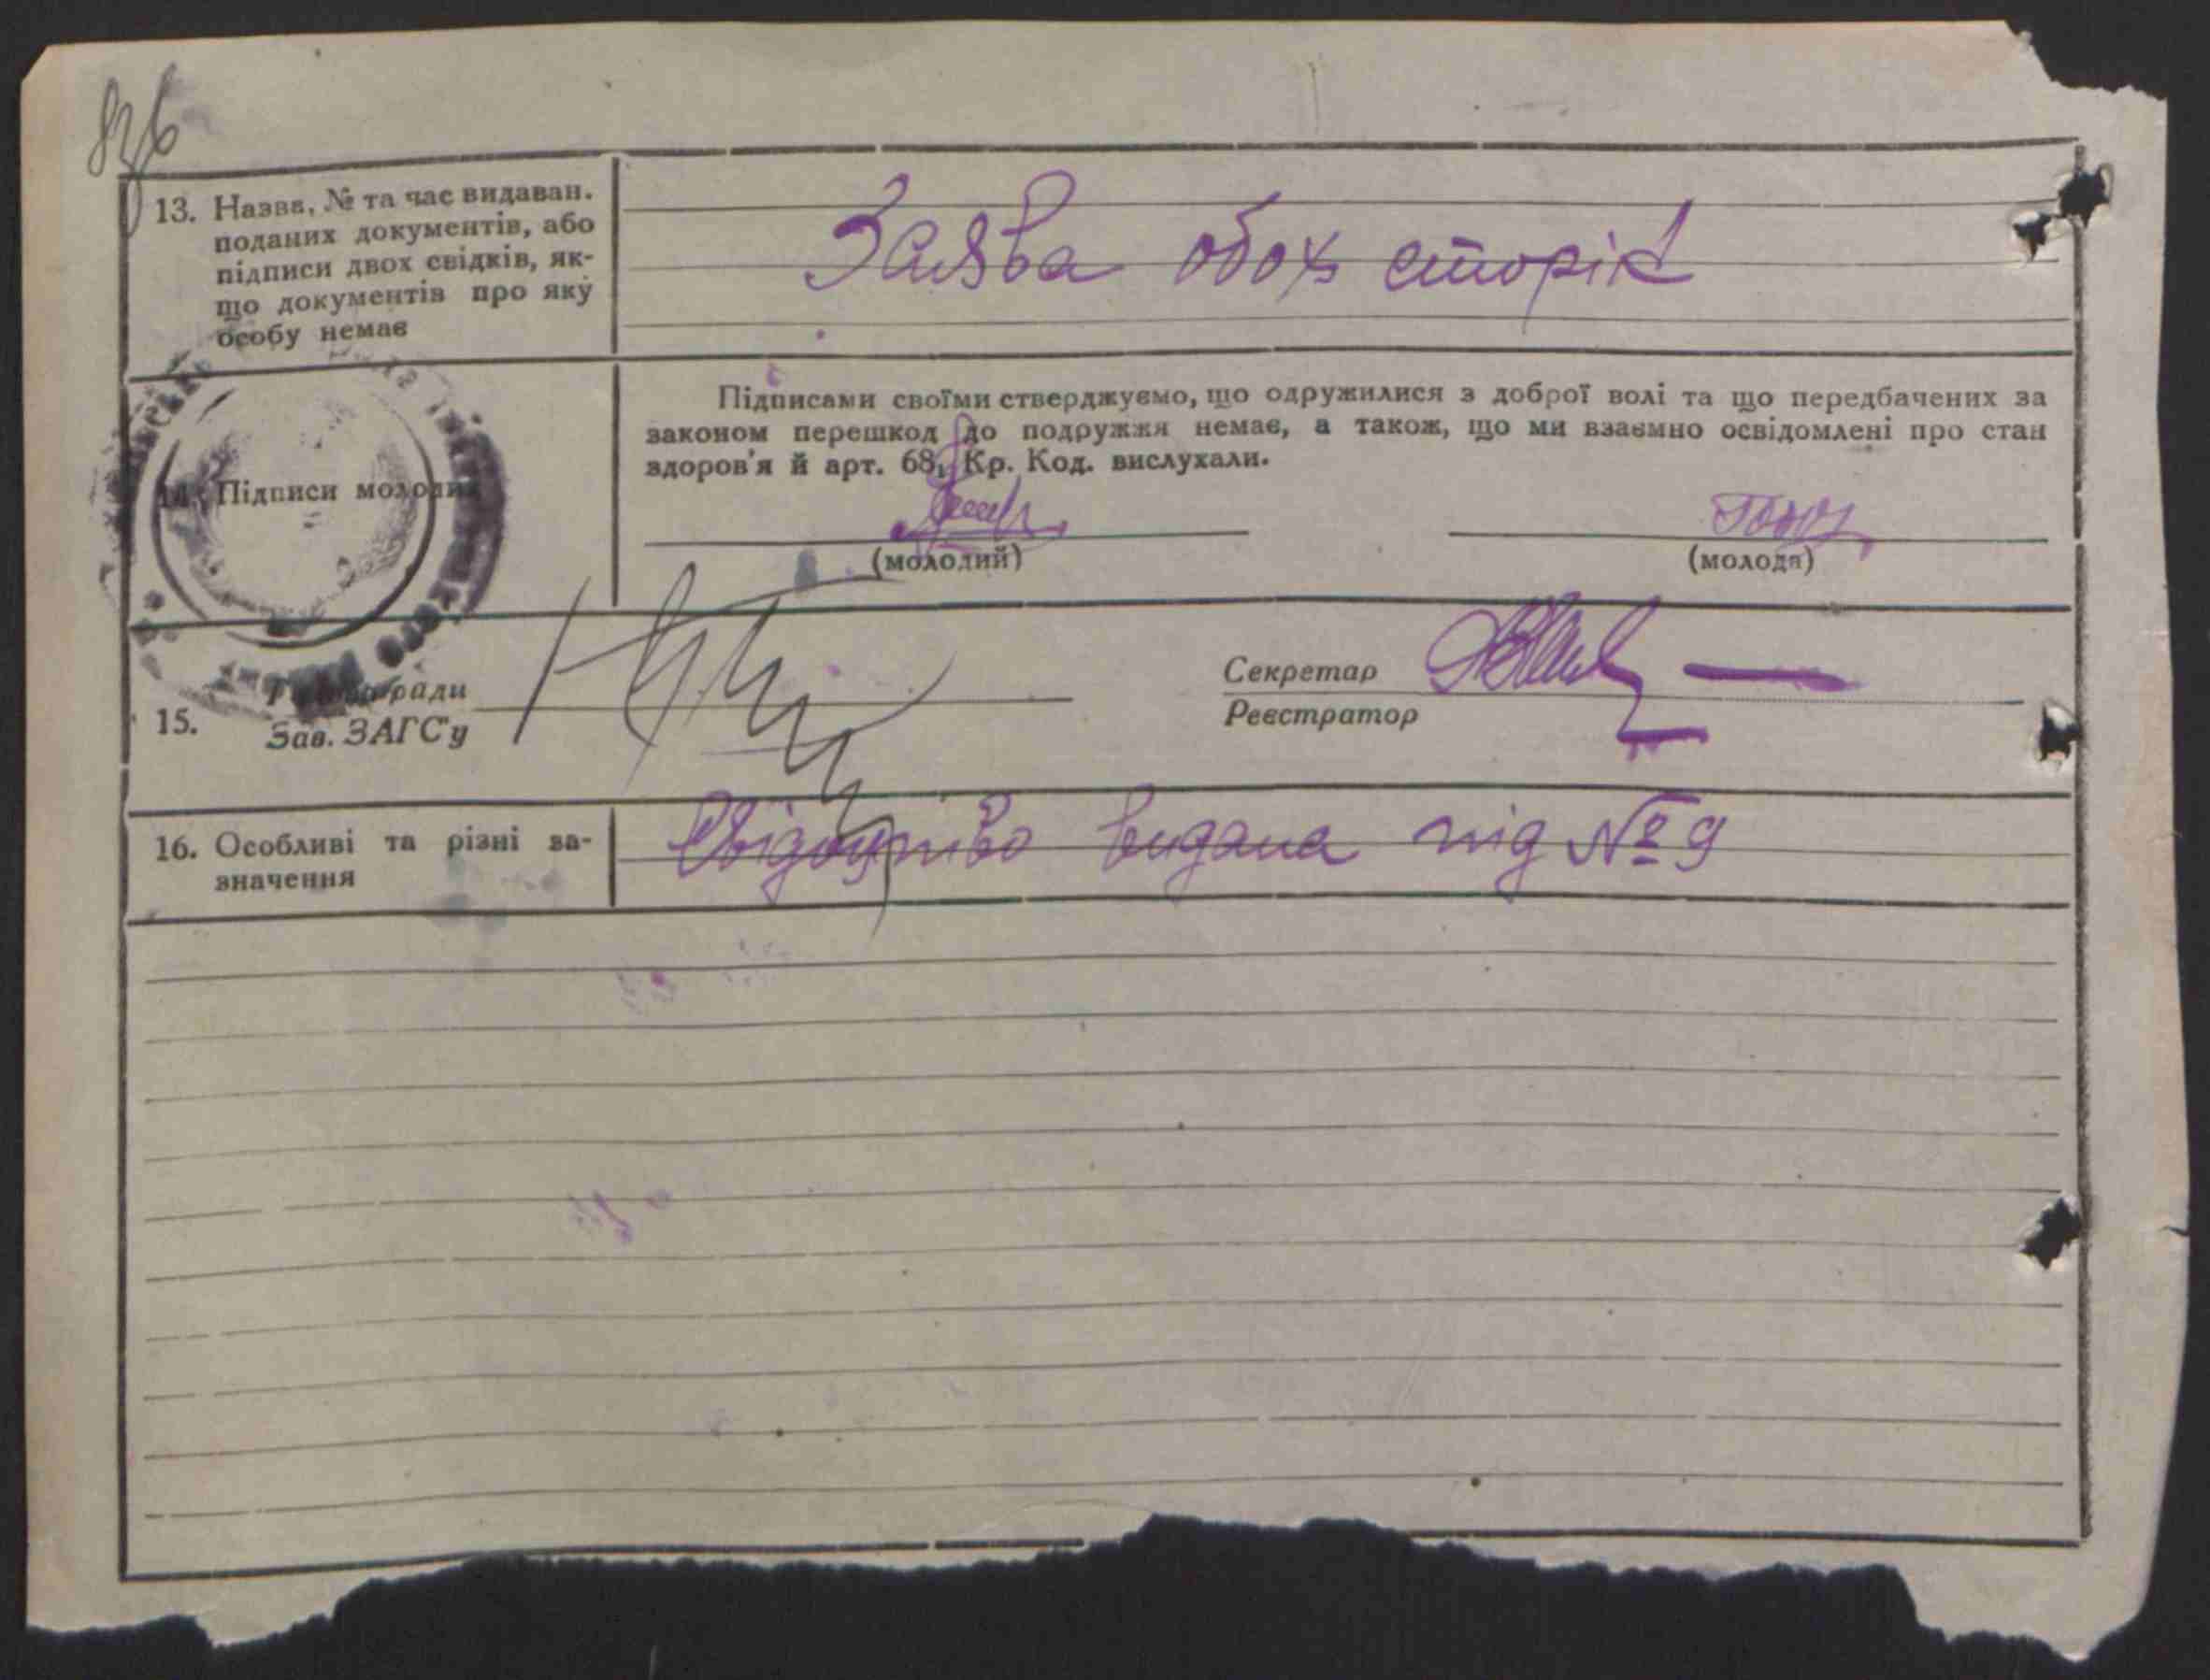 836
13. Назва, № та час видаван.
поданих документів, або
підписи двох свідків, як-
що документів про яку
особу немає
Заява обох сторін
Підписами своїми стверджуємо, що одружилися з доброї волі та що передбачених за
законом перешкод до подружжя немає, а також, що ми взаємно освідомлені про стан
здоров'я й арт. 68₁ Кр. Код. вислухали.
14. Підписи молодих
(молодий)
(молода)
15.
ради
Зав. ЗАГС'у
Секретар
Реєстратор
16. Особливі та різні за-
значення
Свідоцтво видана під № 9